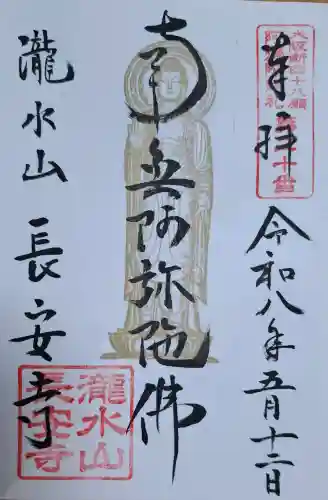 奉拝
大阪新四十八願
令和八年五月十二日
南無阿弥陀佛
瀧水山 長安寺
瀧水山
長安寺